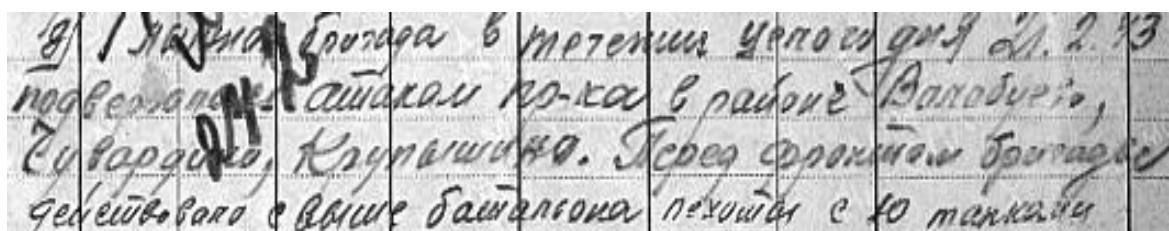 8) лыжная бригада в течении целого дня 21.2.43
подвергалась атакам пр-ка в районе
Чувардино, Крупышино. Перед фронтом бригады
действовало свыше батальона пехоты с 10 танками